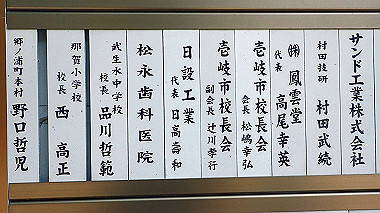 サンド工業株式会社
村田技研 村田武続
㈱鳳雲堂
代表 高尾幸英
壱岐市校長会
会長 松嶋幸弘
壱岐市校長会
副会長 辻川孝行
日設工業
代表 日高壽和
松永歯科医院
武生水中学校
校長 品川哲範
那賀小学校
校長 西高正
郷ノ浦町本村
野口哲児